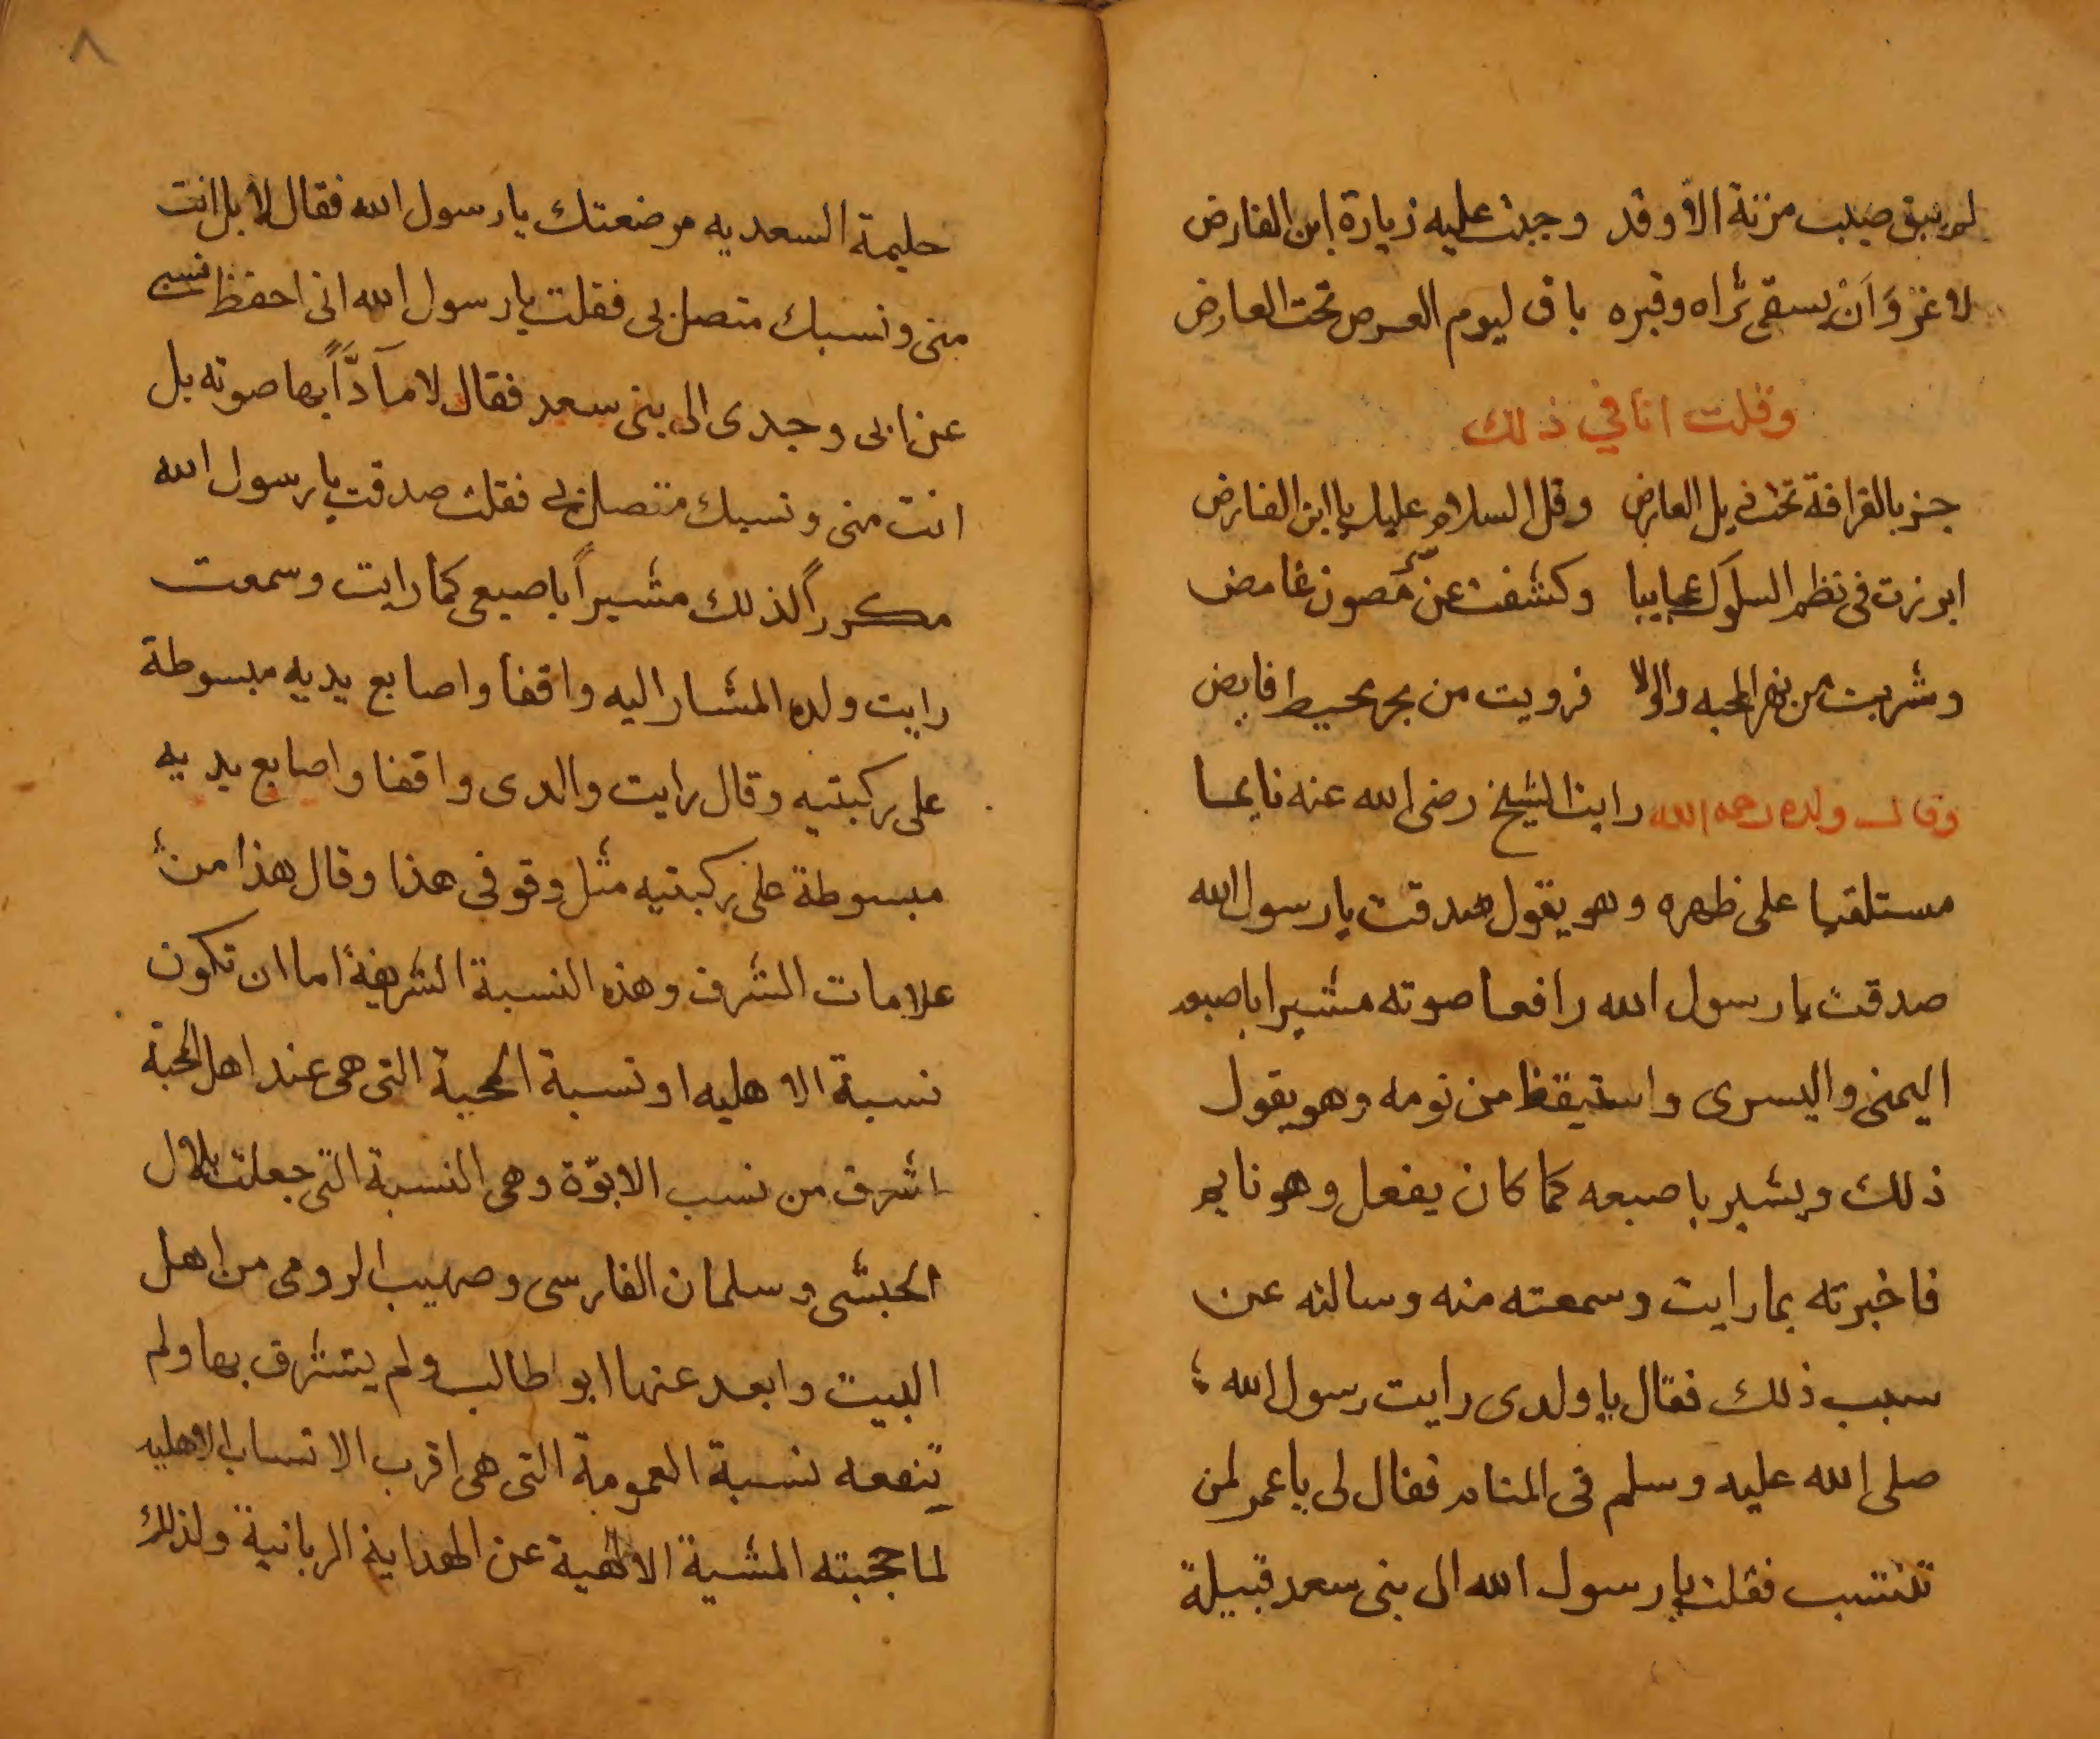 لم يبق صيب مزنة الا وقد وجبت عليه زيارة ابن الفارض
لا غرو اَنْ يسقى ثراه وقبره باق ليوم العرض تحت العارض
وقلت انا في ذلك
جز بالقرافة تحت ذيل العارض وقل السلام عليك يا ابن الفارض
ابرزت فى نظم السلوك عجايبا وكشفت عن سر مصون غامض
وشربت من نهر المحبه والولا فرويت من بحر محيط فايض
وقال ولده رحمه الله رايت الشيخ رضى الله عنه نايما
مستلقيا على ظهره وهو يقول صدقت يا رسول الله
صدقت يا رسول الله رافعا صوته مشيرا باصبعه
اليمنى واليسرى واستيقظ من نومه وهو يقول
ذلك ويشير باصبعه كما كان يفعل وهو نايم
فاخبرته بما رايت وسمعته منه وسالته عن
سبب ذلك فقال يا ولدى رايت رسول الله
صلى الله عليه وسلم فى المنام فقال لى يا عمر لمن
تنتسب فقلت يا رسول الله الى بنى سعد قبيلة
٨
حليمة السعديه مرضعتك يا رسول الله فقال لا بل انت
منى ونسبك متصل بى فقلت يا رسول الله انى احفظ نسبى
عن ابى وجدى الى بنى سعد فقال لا مآدّاً بها صوته بل
انت منى ونسبك متصل بى فقلت صدقت يا رسول الله
مكرراً لذلك مشيراً باصبعى كما رايت وسمعت
رايت ولده المشار اليه واقفا واصابع يديه مبسوطة
على ركبتيه وقال رايت والدى واقفا واصابع يديه
مبسوطة على ركبتيه مثل وقوفى هذا وقال هذا من
علامات الشرف وهذه النسبة الشريفة اما ان تكون
نسبة الاهليه او نسبة المحبة التى هى عند اهل المحبة
اشرف من نسب الابوّة وهى النسبة التى جعلت بلال
الحبشى وسلمان الفارسى وصهيب الرومى من اهل
البيت وابعد عنها ابو اطالب ولم يتشرف بها ولم
تنفعه نسبة العمومة التى هى اقرب الانساب الاهليه
لما حجبته المشية الالهية عن الهداية الربانية ولذلك